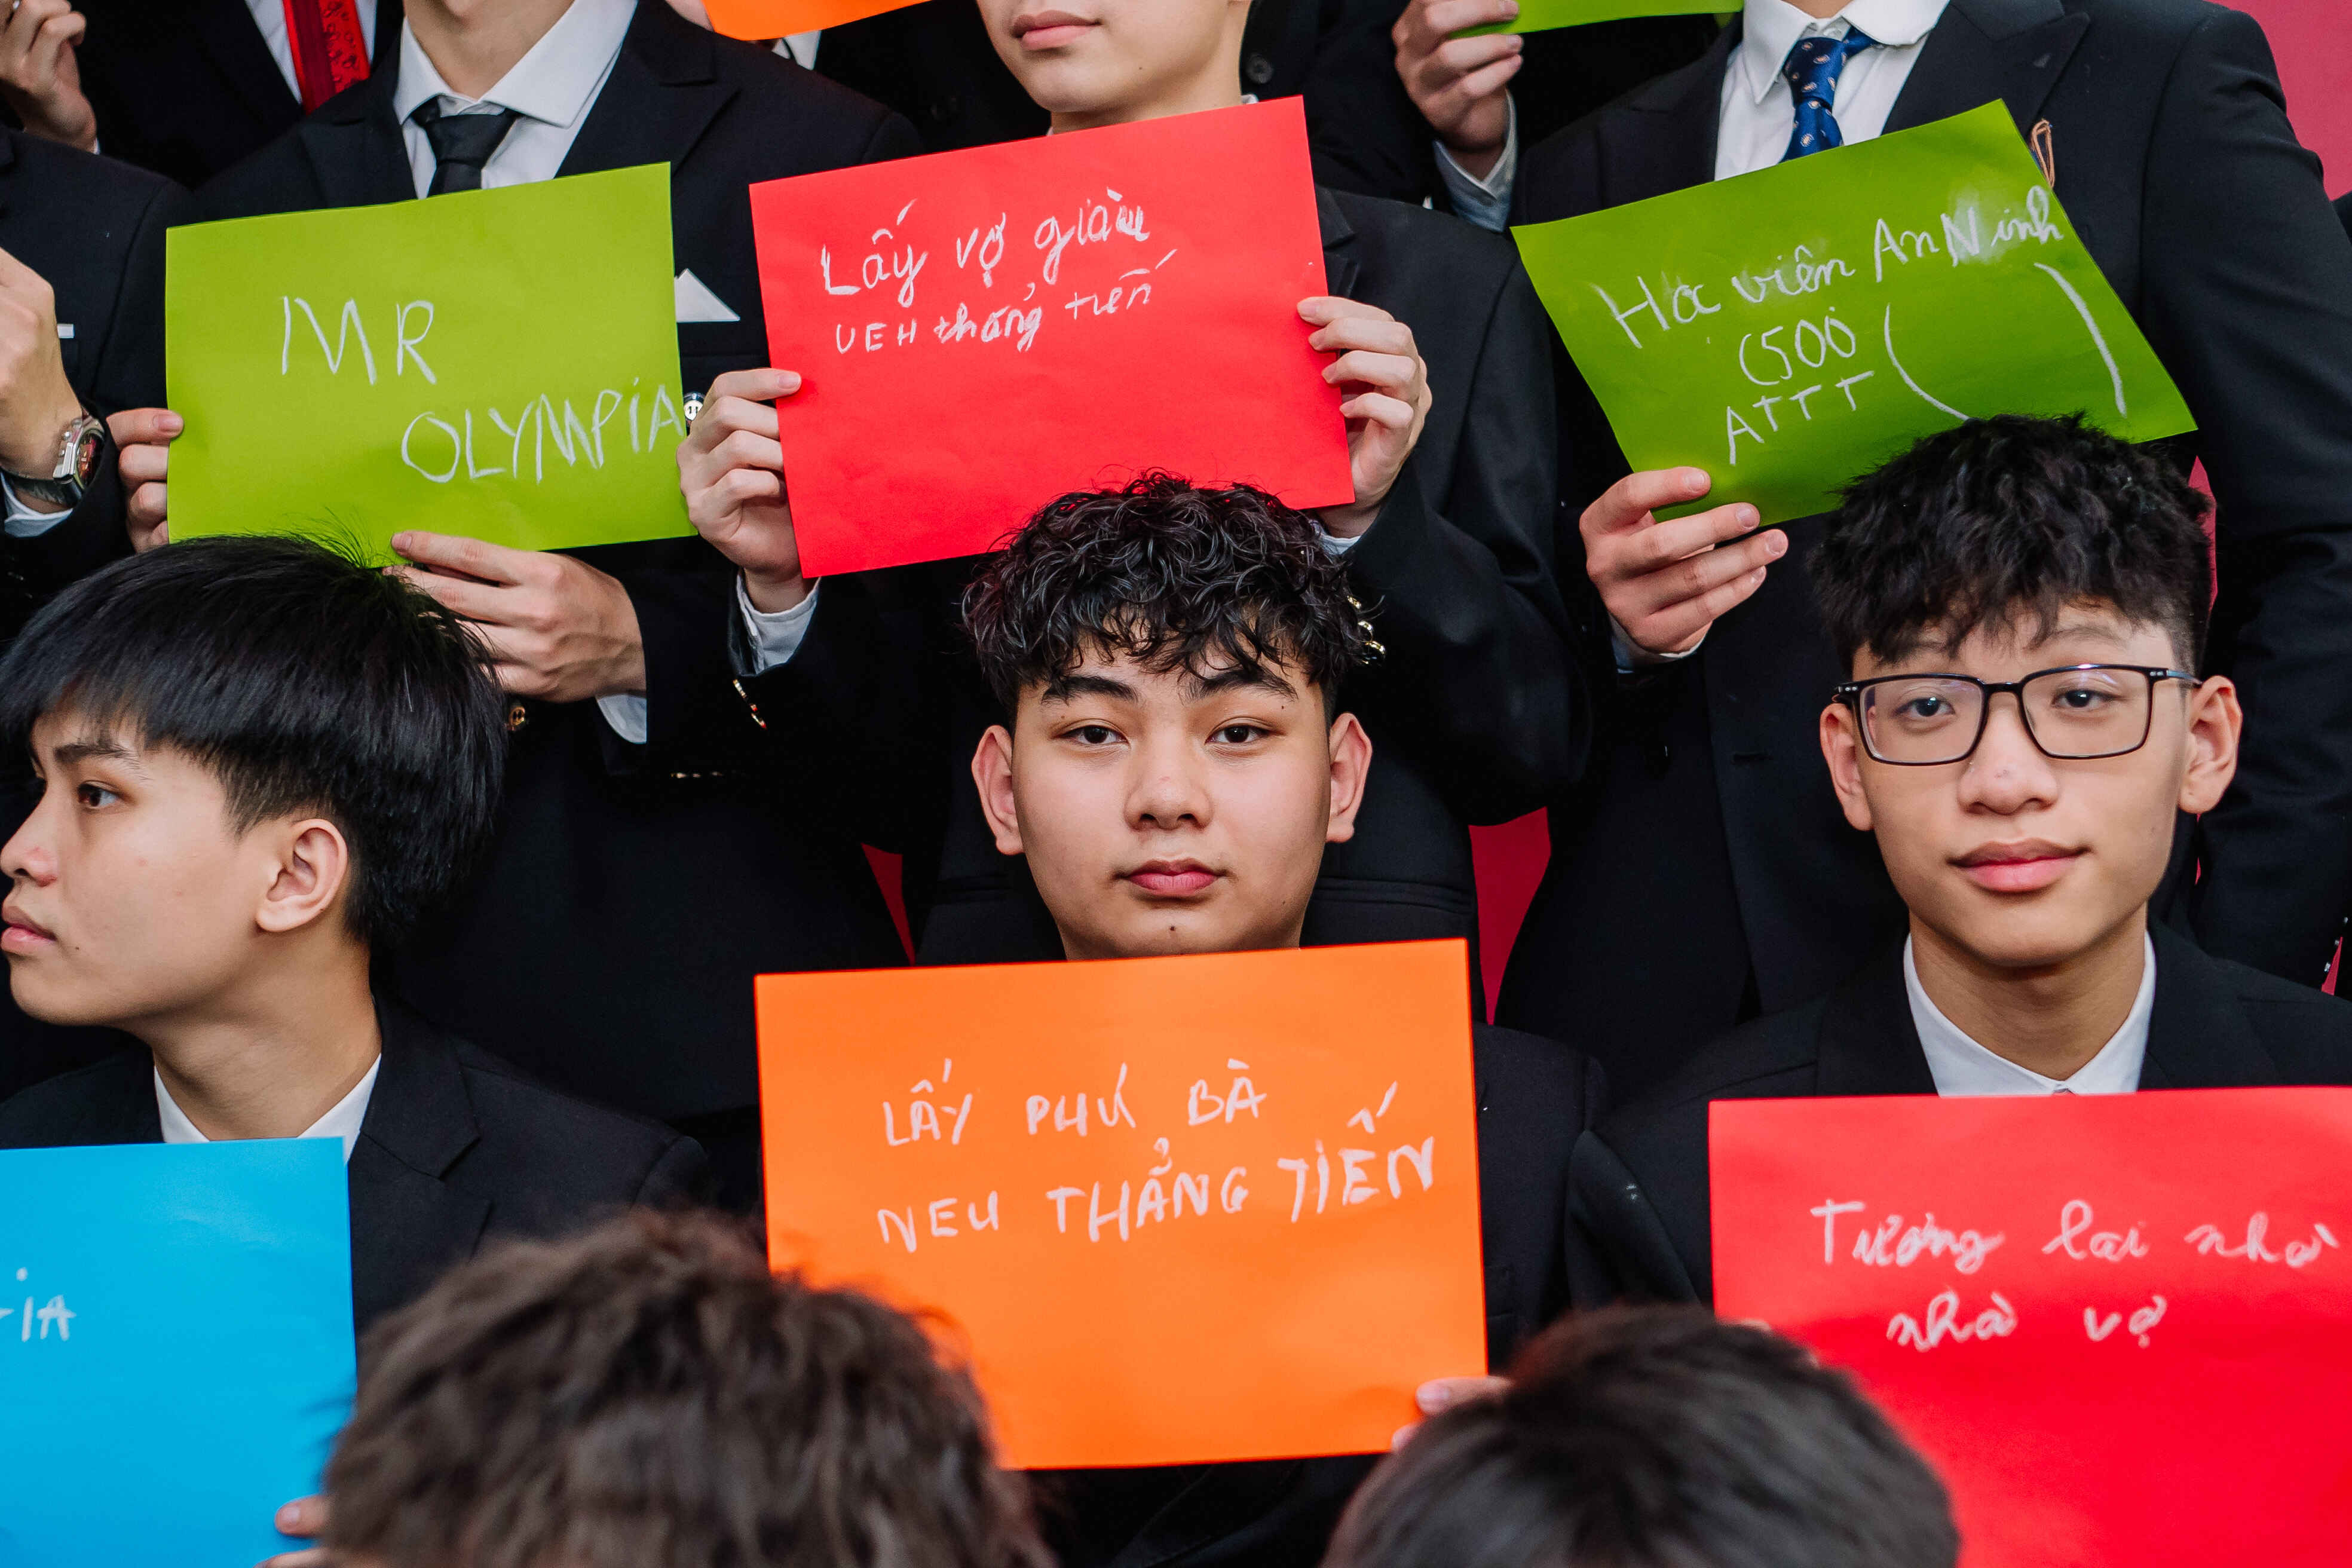 MR
OLYMPIA
Lấy vợ giàu
UEH thẳng tiến
Học viên An Ninh
C500
ATTT ( )
LẤY PHÚ BÀ
NEU THẲNG TIẾN
Tương lai nhờ
nhà vợ
IA